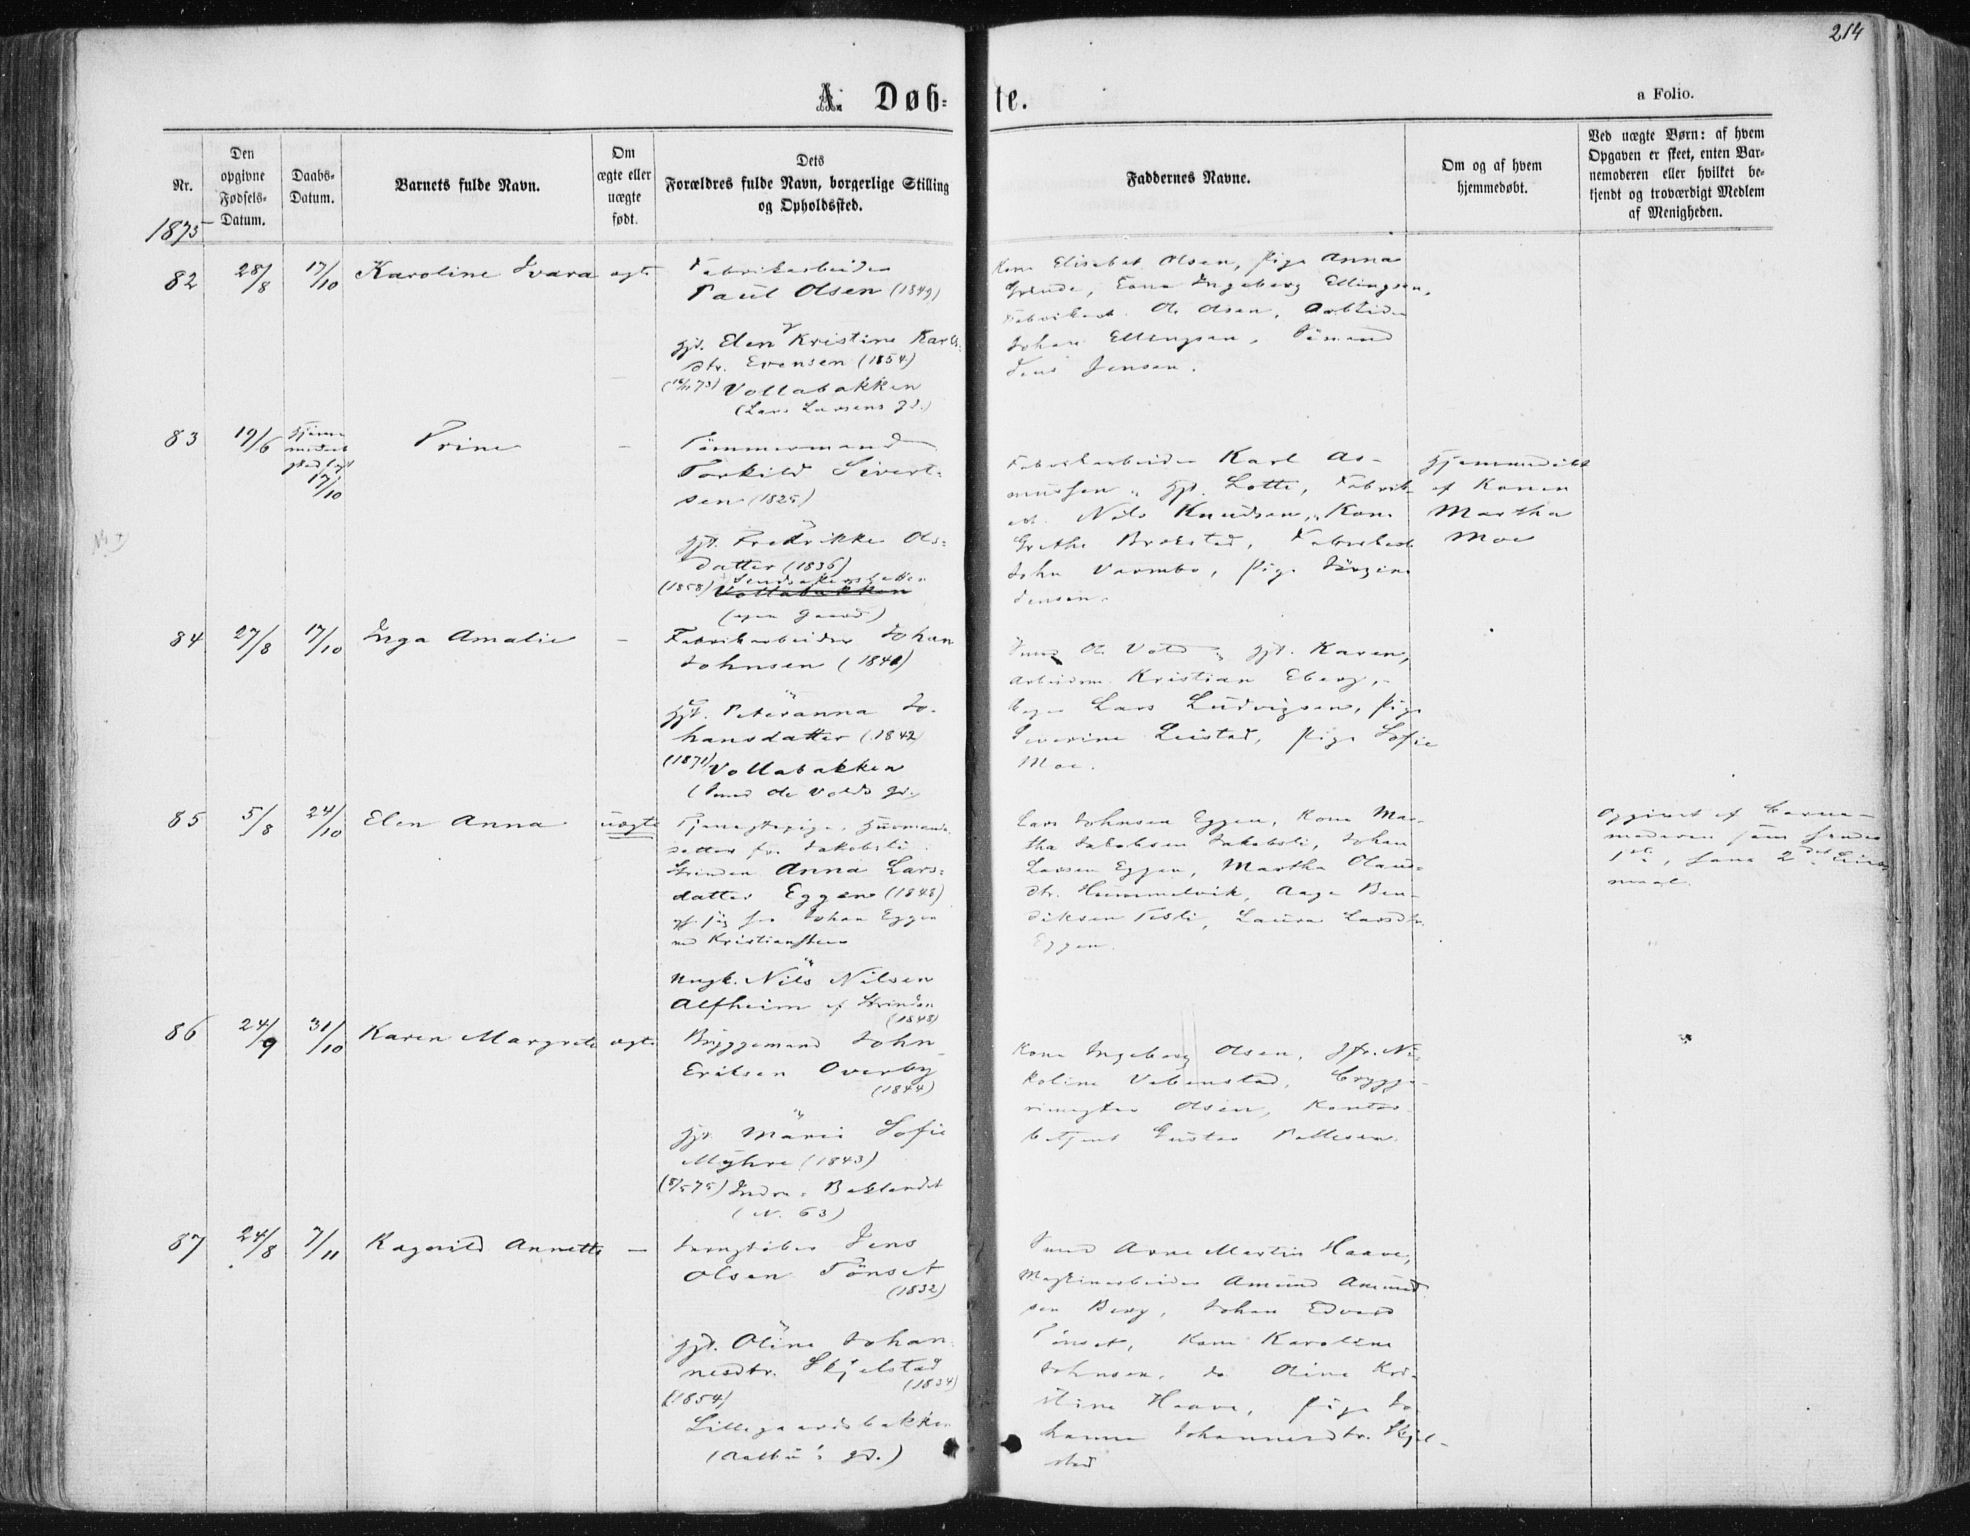 214
A. Døb=
te.
a Folio.
Nr.
Den
opgivne
Fødsels-
Datum.
Daabs-
Datum.
Barnets fulde Navn.
Om
ægte eller
uægte
født.
Dets
Forældres fulde Navn, borgerlige Stilling
og Opholdssted.
Faddernes Navne.
Om og af hvem
hjemmedøbt.
Ved uægte Børn: af hvem
Opgaven er skeet, enten Bar-
nemoderen eller hvilket be-
kjendt og troværdigt Medlem
af Menigheden.
1875
82 28/8 17/10 Karoline Ivara ægte
Fabrikarbeider
Paul Olsen (1849)
Elen Kristine Karls
dtr. Evensen (1854)
Vollabakken
(Lars Larsens gd.)
Kone Elisabet Olsen, Pige Anna
Ingeborg Ellingsen,
Ole Olsen, Arbeider
Johan Ellingsen,
Jens Jensen.
83 19/6 17/10 Trine –
Tømmermand
Torkild Sivert-
sen (1825)
Fredrikke Ols-
datter (1836)
(1858) Vollabakken
(egen Gaard)
Fabrikarbeider Karl As-
mussen, Lotte, Fabrik-
Nils Knudsen, Kone
Grethe Brokstad,
John Varmbo, Pige
Jensen.
Hjemmedøbt
af Konen
Martha
Moe
84 27/8 17/10 Inga Amalie –
Fabrikarbeider Johan
Johnsen (1840)
Peteranna Jo-
hansdatter (1842)
(1871) Vollabakken
(Smed Ole Volds gd.)
Smed Ole Vold, Karen,
Arbeidsm. Kristian Eberg,
Lars Ludvigsen, Pige
Severine Leistad, Pige Sofie
Moe.
85 5/8 24/10 Elen Anna uægte
Tjenestepige, Husmands-
datter fra Jakobsli
Strinden Anna Lars-
datter Eggen (1848)
Johan Eggen
ved Kristiansten
Ungk. Nils Nilsen
Alfheim af Strinden
(1848)
Lars Johnsen Eggen, Kone Mar-
tha Jakobsen Jakobsli, Johan
Larsen Eggen, Martha Olaus-
dtr. Hummelvik, Aage Ben-
diksen Tesli, Laura Larsdtr.
Eggen.
Opgivet af Barne-
moderen som hendes
1ste, hans 2det Leier-
maal.
86 24/9 31/10 Karen Margrete ægte
Bryggemand John
Eriksen Overby
(1844)
Marie Sofie
Myhre (1843)
(8/5 75) Indre Baklandet
(N. 63)
Kone Ingeborg Olsen, Jfr. Ni-
koline Vebenstad, Brygge-
Olsen, Kontor-
betjent Gustav Pettersen.
87 24/8 7/11 Ragnild Annette –
Jens
Olsen Tönset
(1832)
Oline Johan-
nesdtr. Skjelstad
(1834)
(1854)
Lillegaardsbakken
(Aalbu's gd.)
Smed Arne Martin Haave,
Maskinarbeider Amund Amund-
sen Berg, Johan Edvard
Tönset, Kone Karoline
Johnsen, do Oline Kri-
stine Haave, Pige Jo-
hanna Johannesdtr. Skjel-
stad